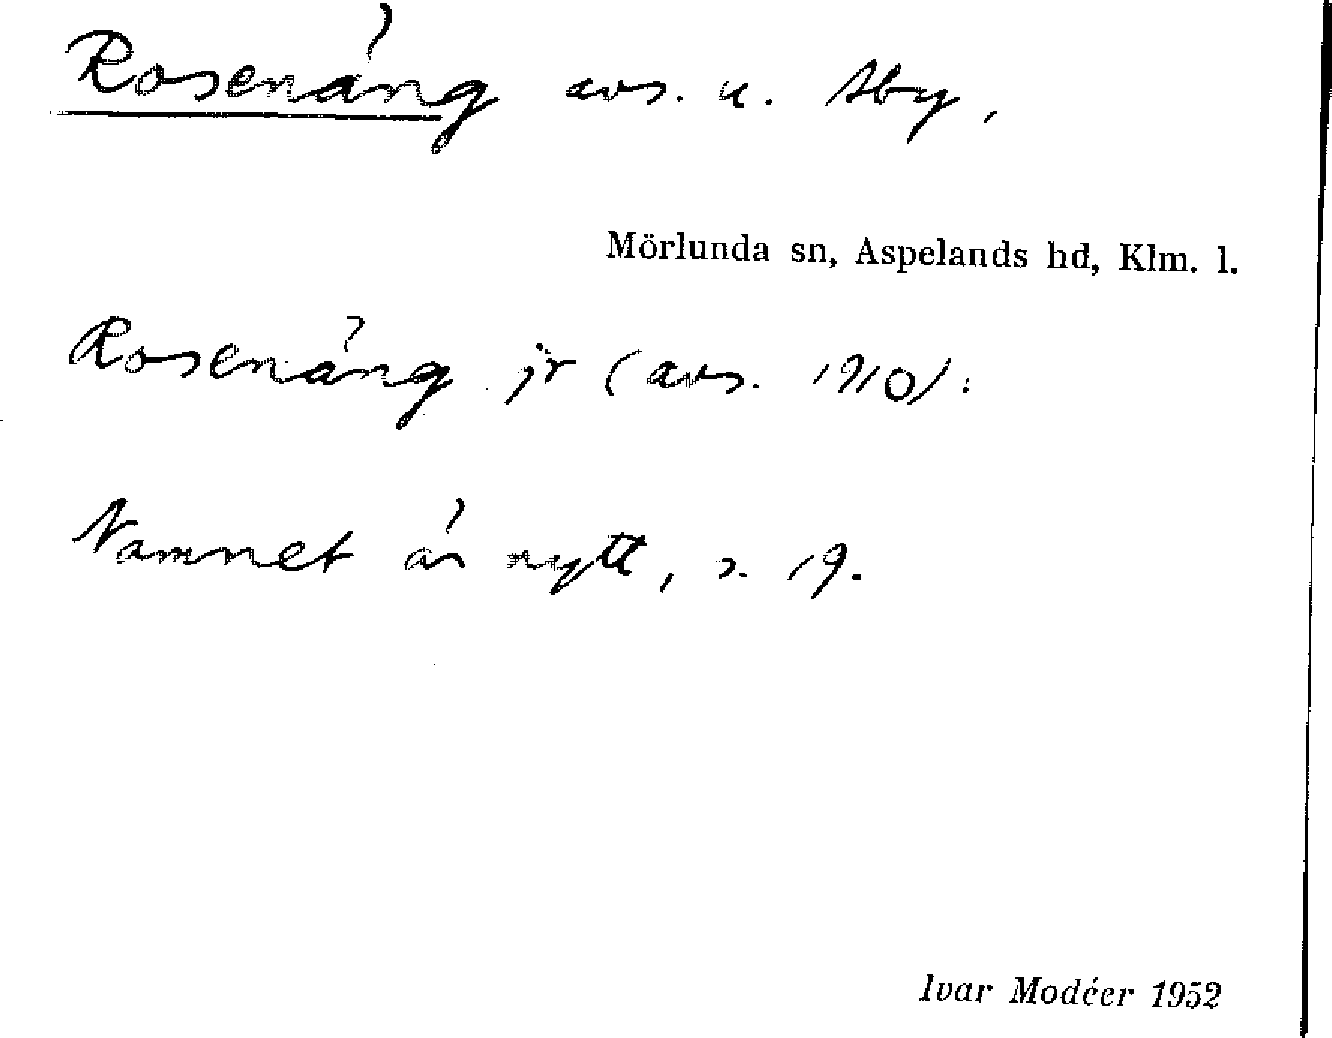 Rosenäng avs. u. Åby,
Mörlunda sn, Aspelands hd, Klm. l.
Rosenäng jr (avs. 1910):
Namnet är nytt, s. 19.
Ivar Modéer 1952